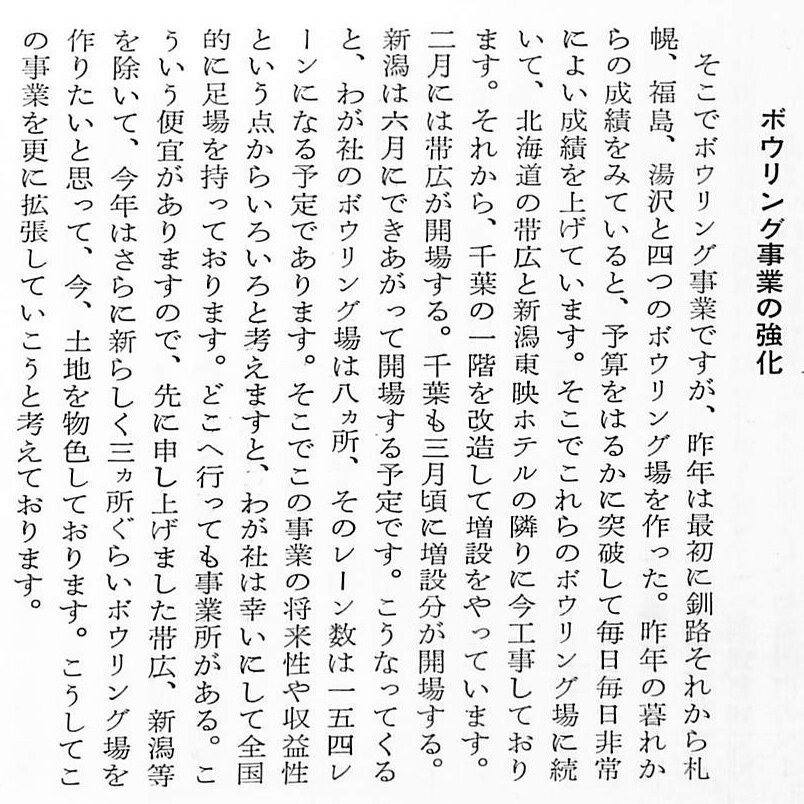 ボウリング事業の強化
そこでボウリング事業ですが、昨年は最初に釧路それから札
幌、福島、湯沢と四つのボウリング場を作った。昨年の暮れか
らの成績をみていると、予算をはるかに突破して毎日毎日非常
によい成績を上げています。そこでこれらのボウリング場に続
いて、北海道の帯広と新潟東映ホテルの隣りに今工事しており
ます。それから、千葉の一階を改造して増設をやっています。
二月には帯広が開場する。千葉も三月頃に増設分が開場する。
新潟は六月にできあがって開場する予定です。こうなってくる
と、わが社のボウリング場は八ヵ所、そのレーン数は一五四レ
ーンになる予定であります。そこでこの事業の将来性や収益性
という点からいろいろと考えますと、わが社は幸いにして全国
的に足場を持っております。どこへ行っても事業所がある。こ
ういう便宜がありますので、先に申し上げました帯広、新潟等
を除いて、今年はさらに新らしく三ヵ所ぐらいボウリング場を
作りたいと思って、今、土地を物色しております。こうしてこ
の事業を更に拡張していこうと考えております。